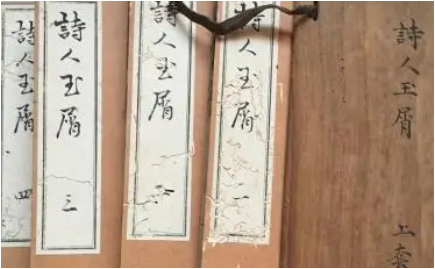 詩人玉屑 上套
詩人玉屑 一
詩人玉屑 二
詩人玉屑 三
詩人玉屑 四